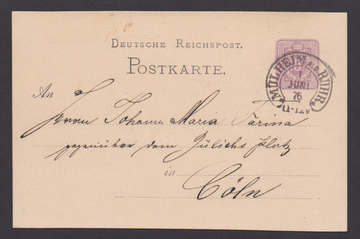 DEUTSCHE REICHSPOST.
POSTKARTE.
MÜLHEIM a.d. RUHR.
JUNI
76
An
Herrn Johann Maria Farina
gegenüber dem Jülichs Platz
in
Cöln